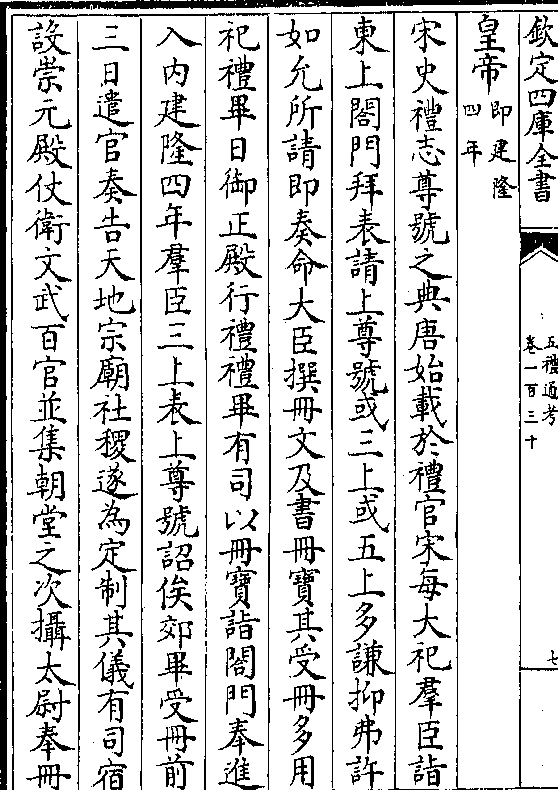 欽定四庫全書
五禮通考
卷一百三十
七
皇帝即建隆四年
宋史禮志尊號之典唐始載於禮官宋每大祀羣臣詣
東上閤門拜表請上尊號或三上或五上多謙抑弗許
如允所請即奏命大臣撰冊文及書冊寶其受冊多用
祀禮畢日御正殿行禮禮畢有司以冊寶詣閤門奉進
入内建隆四年羣臣三上表上尊號詔俟郊畢受冊前
三日遣官奏告天地宗廟社稷遂為定制其儀有司宿
設崇元殿仗衛文武百官並集朝堂之次攝太尉奉冊